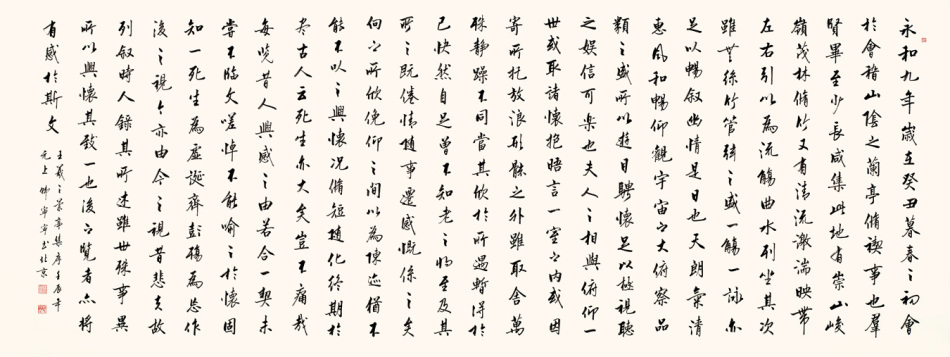 永和九年歲在癸丑暮春之初會
於會稽山陰之蘭亭脩禊事也羣
賢畢至少長咸集此地有崇山峻
嶺茂林脩竹又有清流激湍映帶
左右引以為流觴曲水列坐其次
雖無絲竹管弦之盛一觴一詠亦
足以暢敘幽情是日也天朗氣清
惠風和暢仰觀宇宙之大俯察品
類之盛所以遊目騁懷足以極視聽
之娛信可樂也夫人之相與俯仰一
世或取諸懷抱晤言一室之內或因
寄所托放浪形骸之外雖取舍萬
殊靜躁不同當其欣於所遇暫得於
己快然自足曾不知老之將至及其
所之既倦情隨事遷感慨係之矣
向之所欣俛仰之間以為陳迹猶不
能不以之興懷況脩短隨化終期於
盡古人云死生亦大矣豈不痛哉
每覽昔人興感之由若合一契未
嘗不臨文嗟悼不能喻之於懷固
知一死生為虛誕齊彭殤為妄作
後之視今亦由今之視昔悲夫故
列敘時人錄其所述雖世殊事異
所以興懷其致一也後之覽者亦將
有感於斯文
王羲之蘭亭集序壬辰年